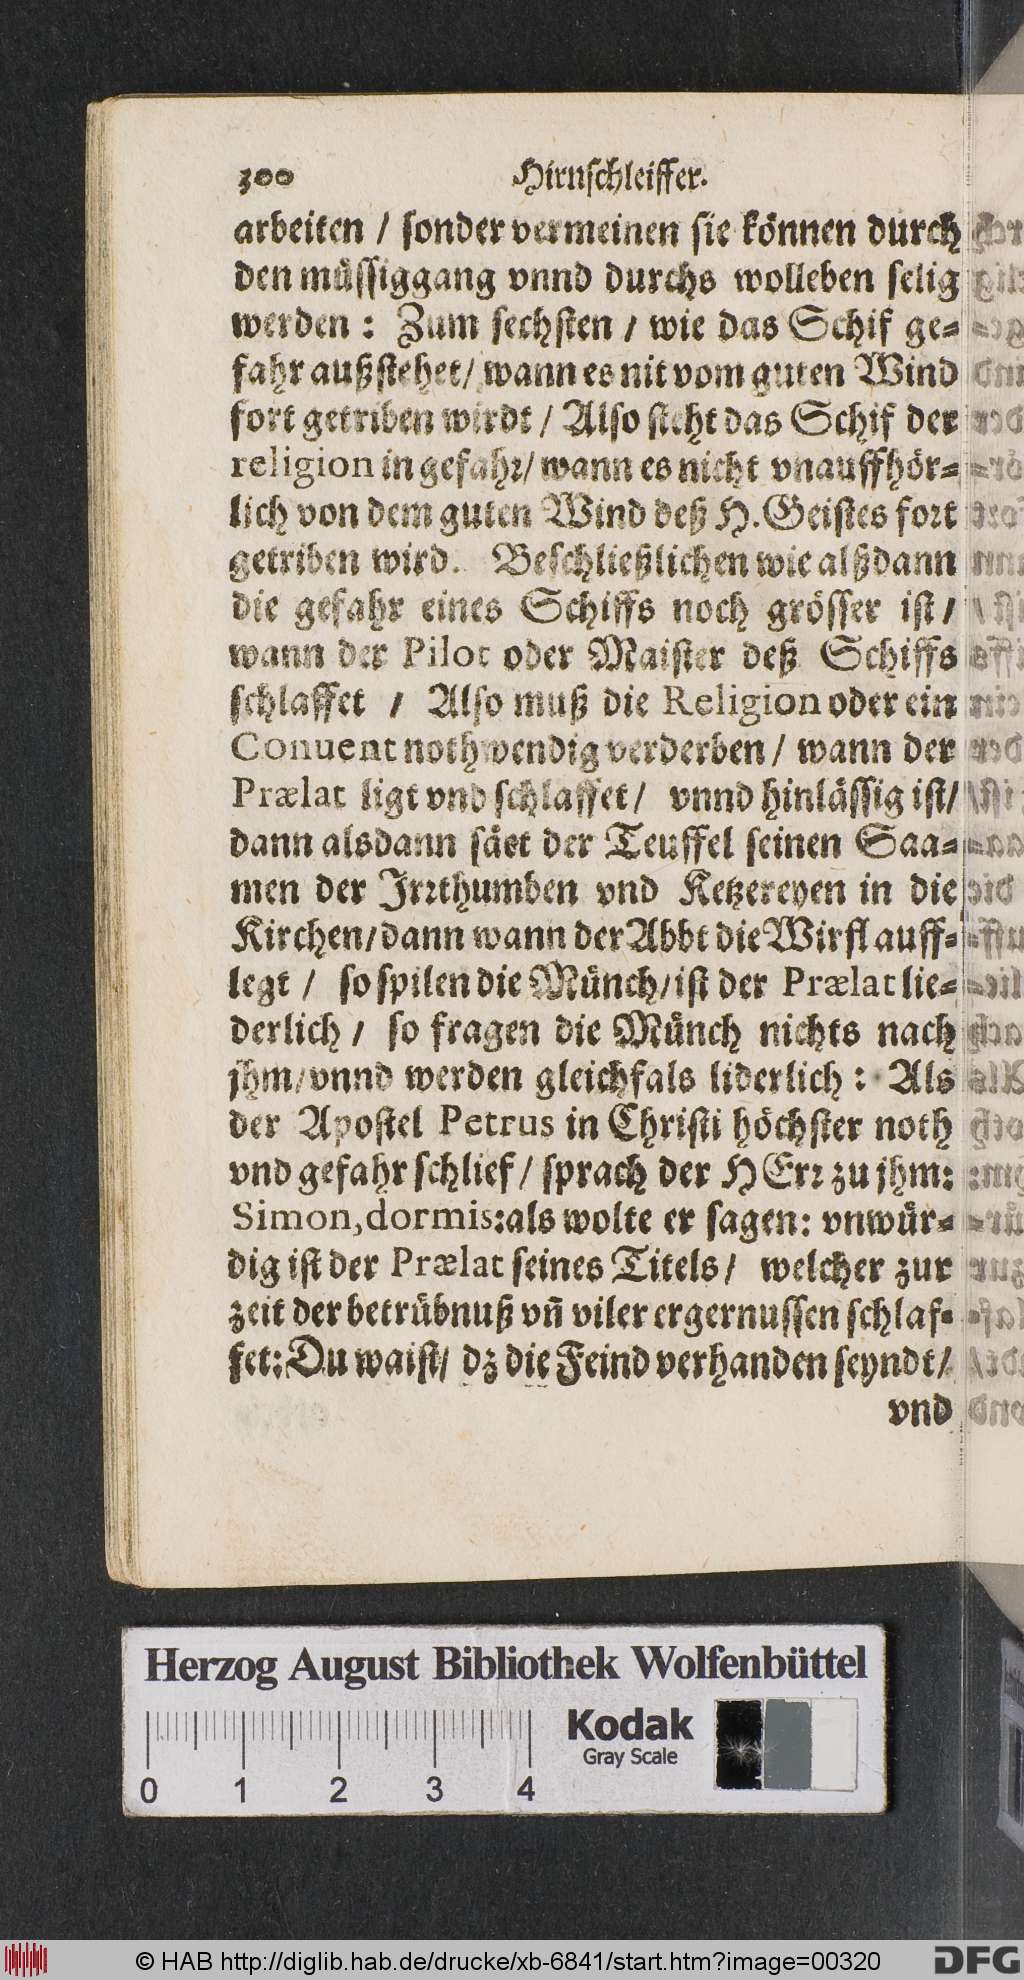 300 Hirnschleiffer.
arbeiten / sonder vermeinen sie können durch
den müssiggang vnnd durchs wolleben selig
werden : Zum sechsten / wie das Schif ge-
fahr außstehet / wann es nit vom guten Wind
fort getriben wirdt / Also steht das Schif der
religion in gefahr / wann es nicht vnauffhör-
lich von dem guten Wind deß H. Geistes fort
getriben wird. Beschließlichen wie alßdann
die gefahr eines Schiffs noch grösser ist /
wann der Pilot oder Maister deß Schiffs
schlaffet / Also muß die Religion oder ein
Conuent nothwendig verderben / wann der
Prælat ligt vnd schlaffet / vnnd hinlässig ist /
dann alsdann säet der Teuffel seinen Saa-
men der Irrthumben vnd Ketzereyen in die
Kirchen / dann wann der Abbt die Wirfl auff-
legt / so spilen die Münch / ist der Prælat lie-
derlich / so fragen die Münch nichts nach
jhm / vnnd werden gleichfals liderlich : Als
der Apostel Petrus in Christi höchster noth
vnd gefahr schlief / sprach der HErr zu jhm:
Simon, dormis: als wolte er sagen: vnwür-
dig ist der Prælat seines Titels / welcher zur
zeit der betrübnuß vñ viler ergernussen schlaf-
fet: Du waist / dz die Feind verhanden seyndt /
vnd
Herzog August Bibliothek Wolfenbüttel
Kodak
Gray Scale
0 1 2 3 4
© HAB http://diglib.hab.de/drucke/xb-6841/start.htm?image=00320
DFG